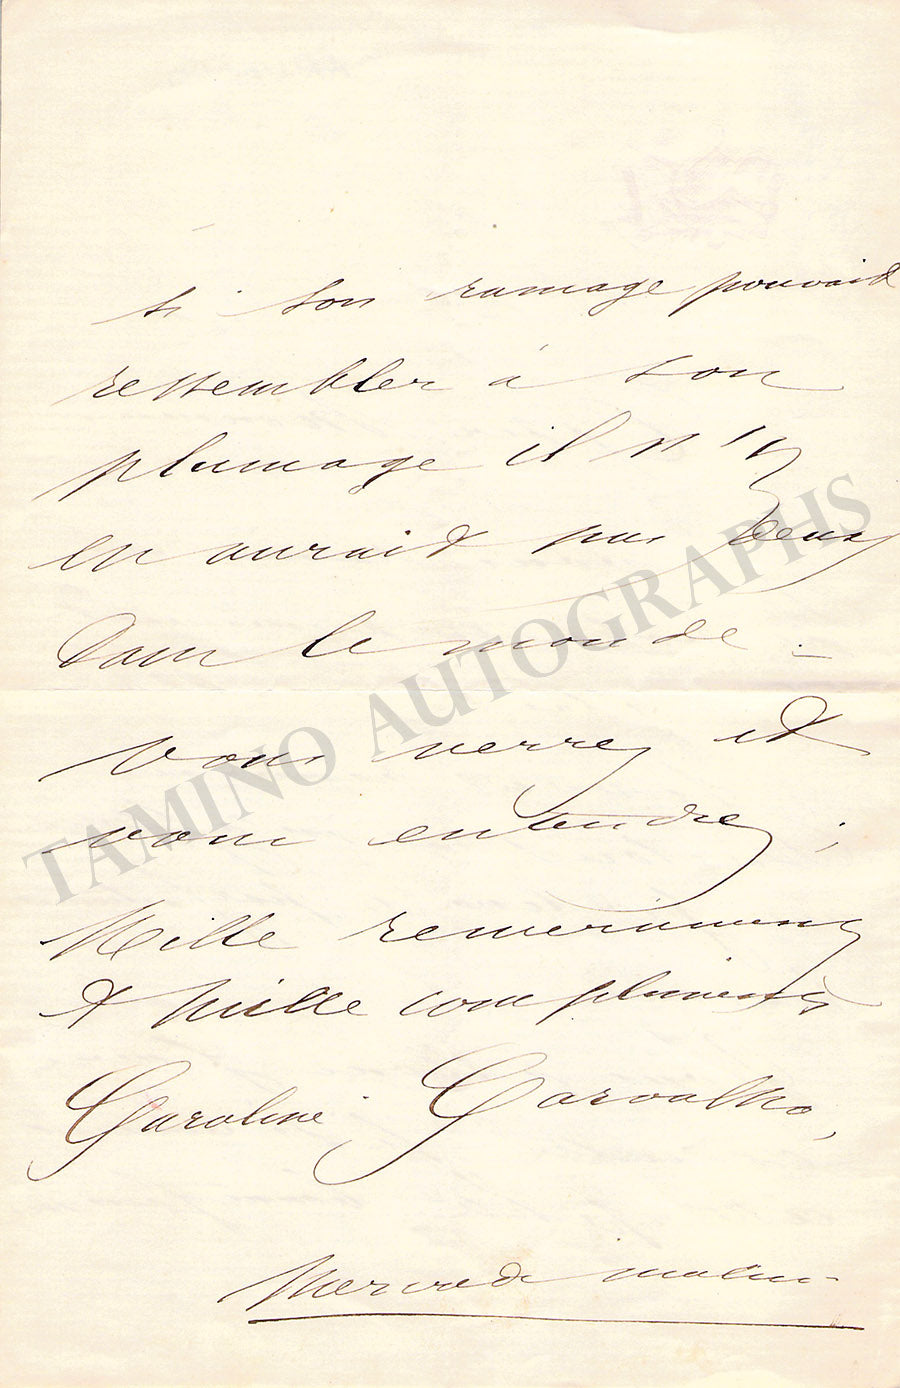 si son ramage pouvait
ressembler à son
plumage il n'y
en aurait pas deux
dans le monde. –
Vous verrez et
vous entendrez;
Mille remerciements
et mille compliments
Caroline Carvalho,
Mercredi matin
TAMINO AUTOGRAPHS